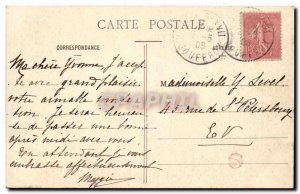 CARTE POSTALE
CORRESPONDANCE
Ma chère Yvonne J'accep
te avec grand plaisir
votre aimable invita
tion. Je serai heureu
se de passer une bonne
après midi avec vous.
En attendant je vous
embrasse affectueusement
Mademoiselle Y.
43 rue de St Pétersbourg
E.V